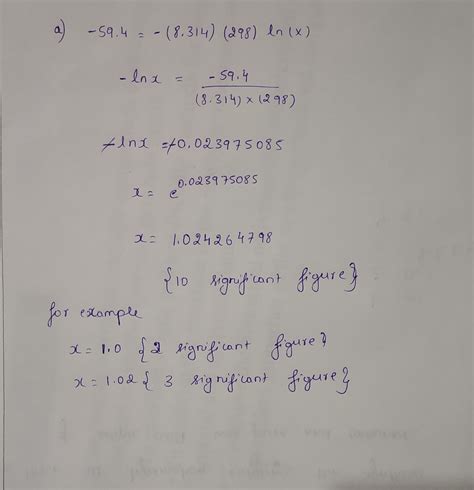 a) -59.4 = -(8.314) (298) ln(x)
-lnx = -59.4
(8.314)×(298)
-lnx = -0.023975085
x = e^0.023975085
x = 1.024264798
{10 significant figure}
for example
x = 1.0 {2 significant figure}
x = 1.02 { 3 significant figure}